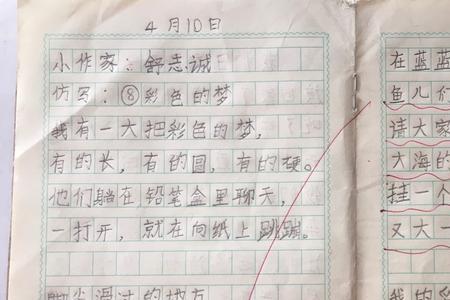 4月10日
小作家：舒志诚
仿写：⑧彩色的梦
我有一大把彩色的梦，
有的长，有的圆，有的硬。
他们躺在铅笔盒里聊天，
一打开，就在向纸上跳蹦。
脚尖滑过的地方
在蓝蓝
鱼儿们
请大家
大海的
挂一个
又大一
我的